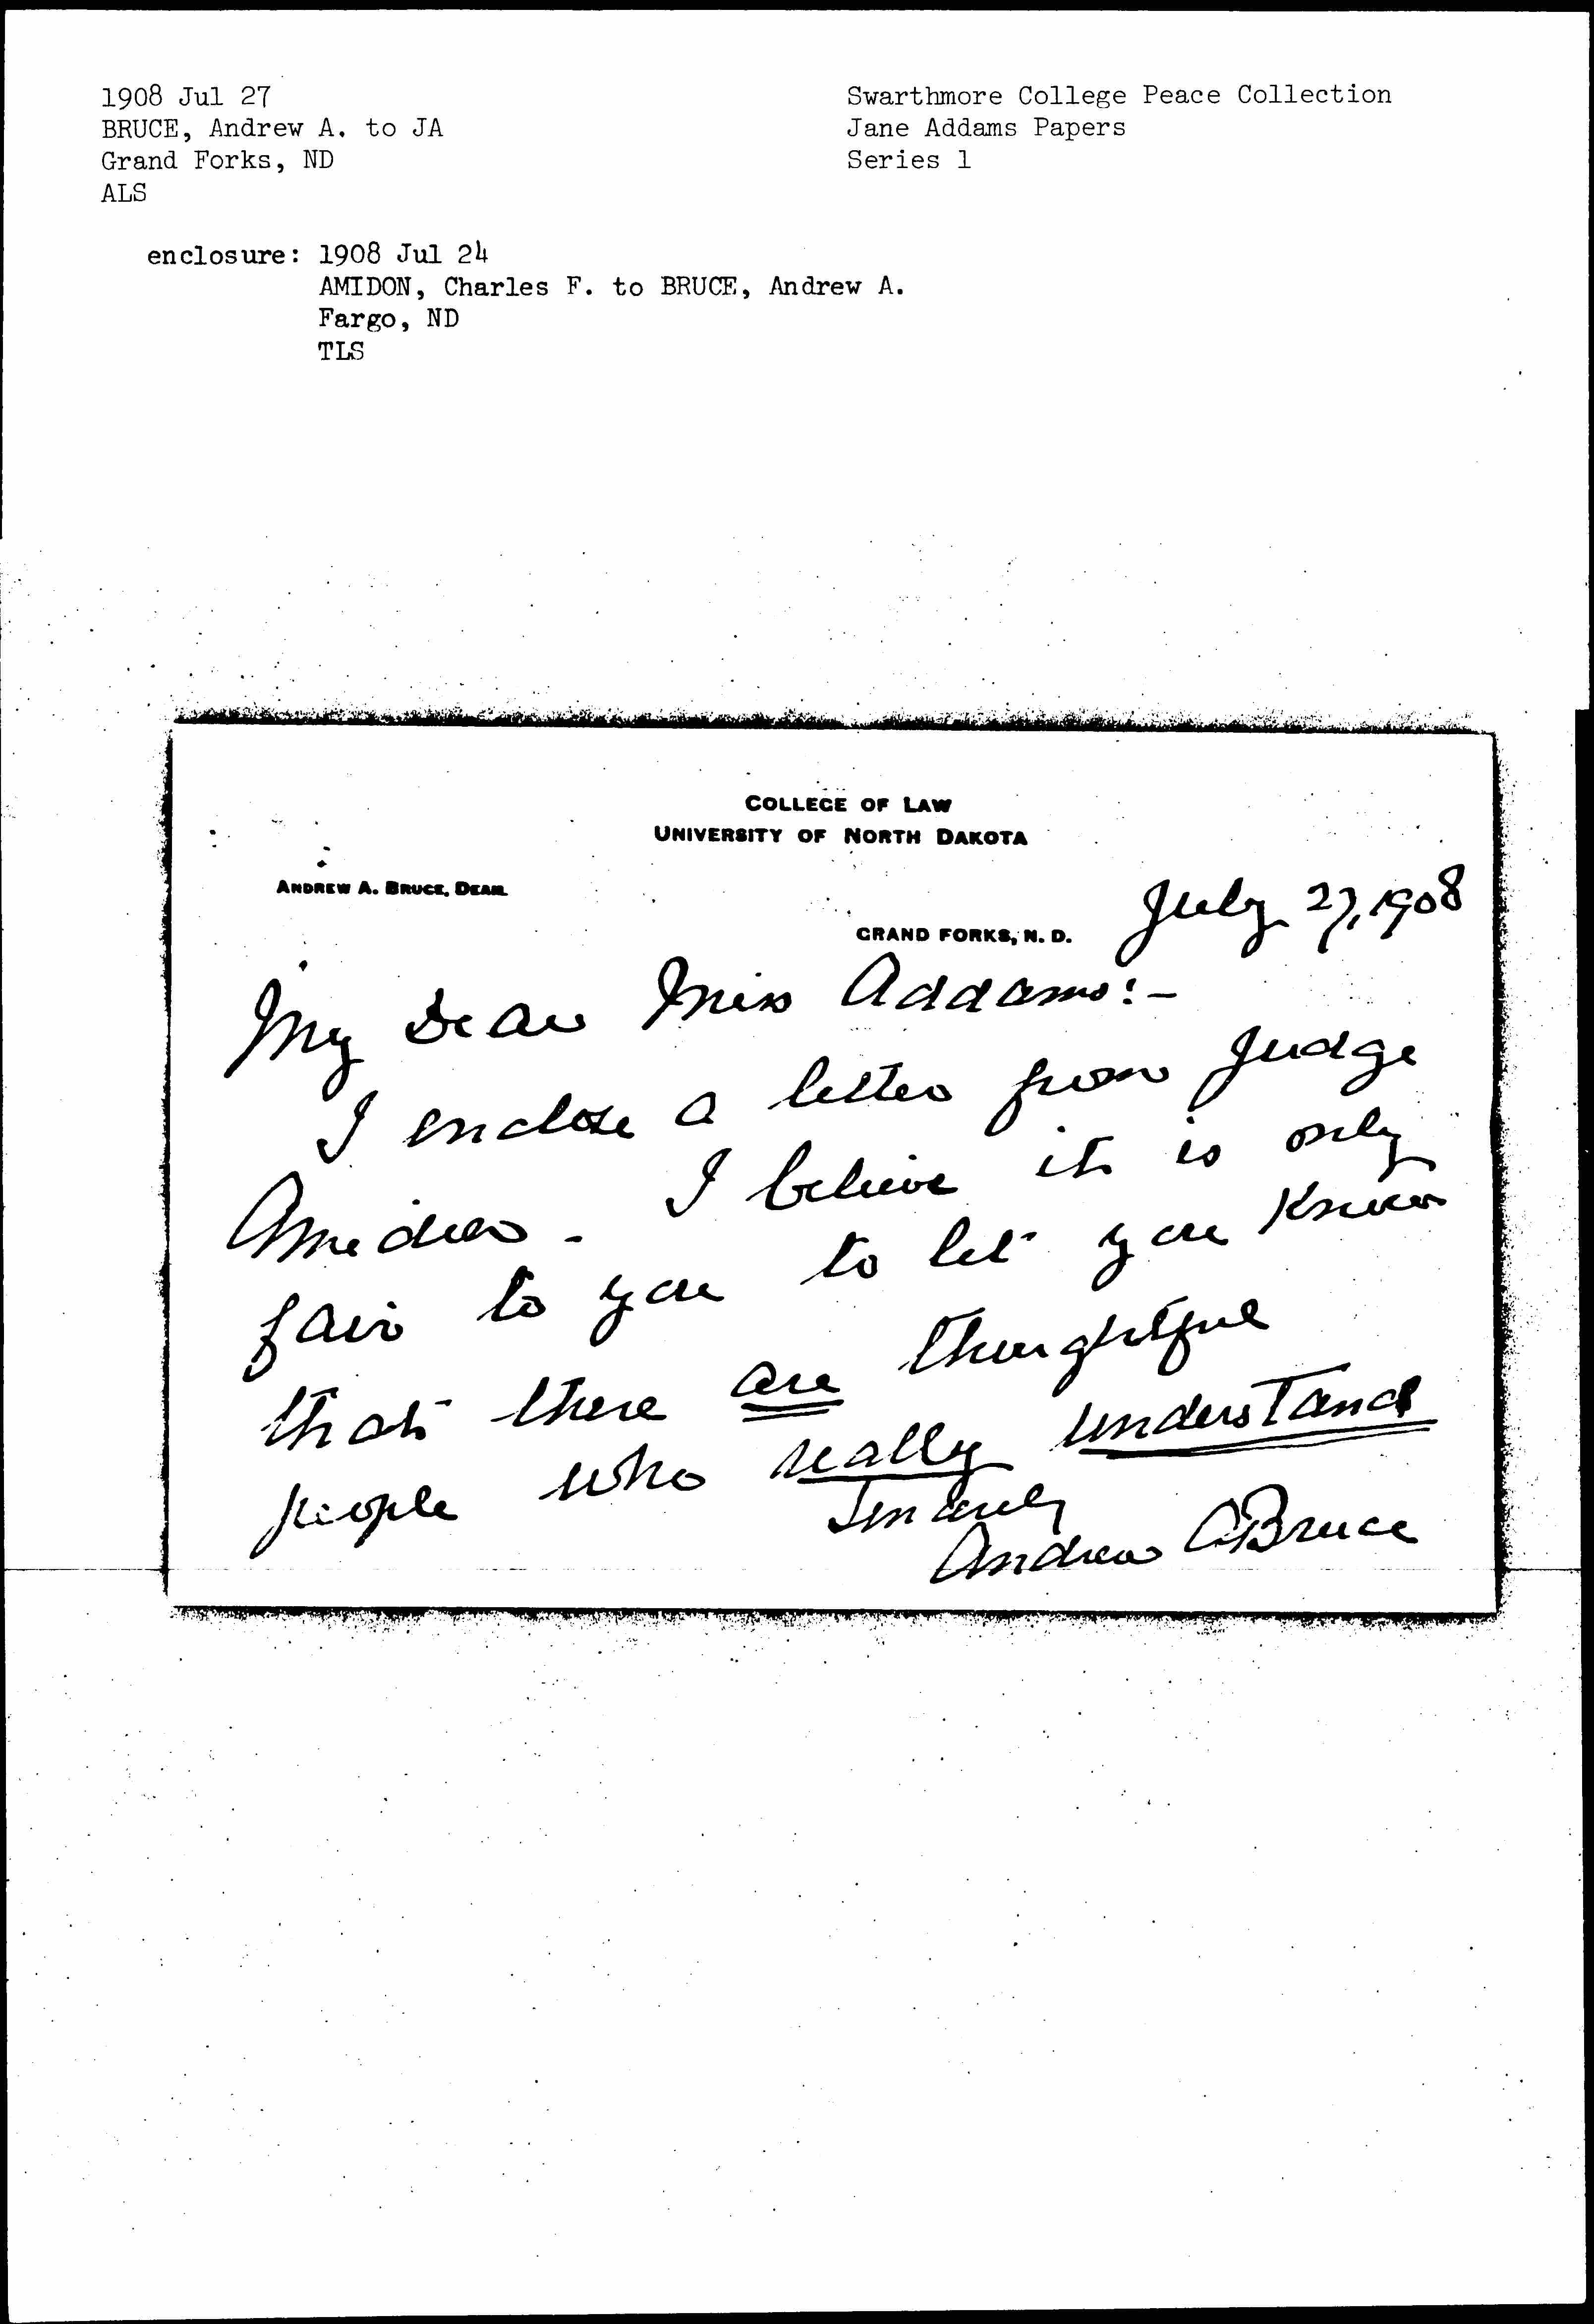 1908 Jul 27
BRUCE, Andrew A. to JA
Grand Forks, ND
ALS
Swarthmore College Peace Collection
Jane Addams Papers
Series 1
enclosure: 1908 Jul 24
AMIDON, Charles F. to BRUCE, Andrew A.
Fargo, ND
TLS
COLLEGE OF LAW
UNIVERSITY OF NORTH DAKOTA
ANDREW A. BRUCE, DEAN.
GRAND FORKS, N. D. July 27, 1908
My Dear Miss Addams:-
I enclose a letter from Judge
Amidon - I believe it is only
fair to you to let you know
that there are thoughtful
people who really understand
Sincerely
Andrew A Bruce